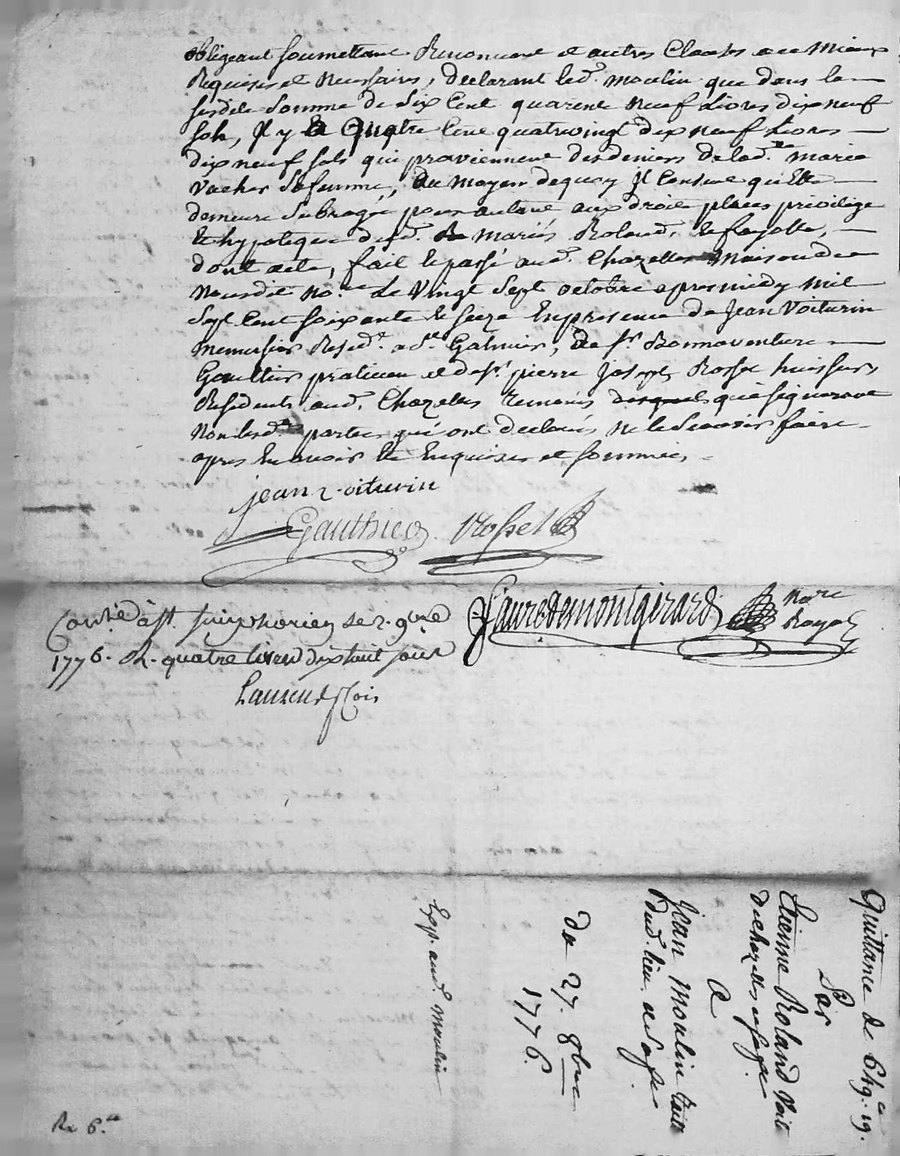 obligeant soumettant Renonceant et autres Clauses au Mieux
Requises et Necessaires, declarant led. moulin que dans la
susdite somme de Six Cent quarente neuf Livres dix neuf
sols, Il y a Quatre Cent quatrevingt dix neuf Livres
dix neuf sols qui proviennent des deniers de lad. marie
Vacher sa femme, au moyen dequoy Il Consent qu'Elle
demeure Subrogée pour autant aux droit place privilege
et hypoteque desd. mariés Roland, et fayolle,
dont acte, fait et passé aud. Chazelles Maison de
Nousdit no.re Le Vingt Sept octobre apres midy mil
Sept Cent soixante et seize En presence de Jean Voiturin
menuisier Resid.t a St. Galmier, de Sr Bonnaventure
Gaultier praticien et de Sr. pierre Joseph Rosset huissier
Residents aud. Chazelles temoins qui signeront
Non lesd. parties qui ont declarés ne le Scavoir faire
apres En avoir Eté Enquises et sommées,
jean voiturin
Gauthier Rosset
fauredemontgirard no.re Royal
Conlé à St. simphorien le 2. 9bre
1776. R. quatre livres dix huit sous
Laurendfcois
Quittance de 649.# 19.
Par
Etienne Roland Voit
de chazelles
A
Jean Moulin
dud. lieu
du 27. 8bre
1776.
Exp. aud. Moulin
Rx 6.